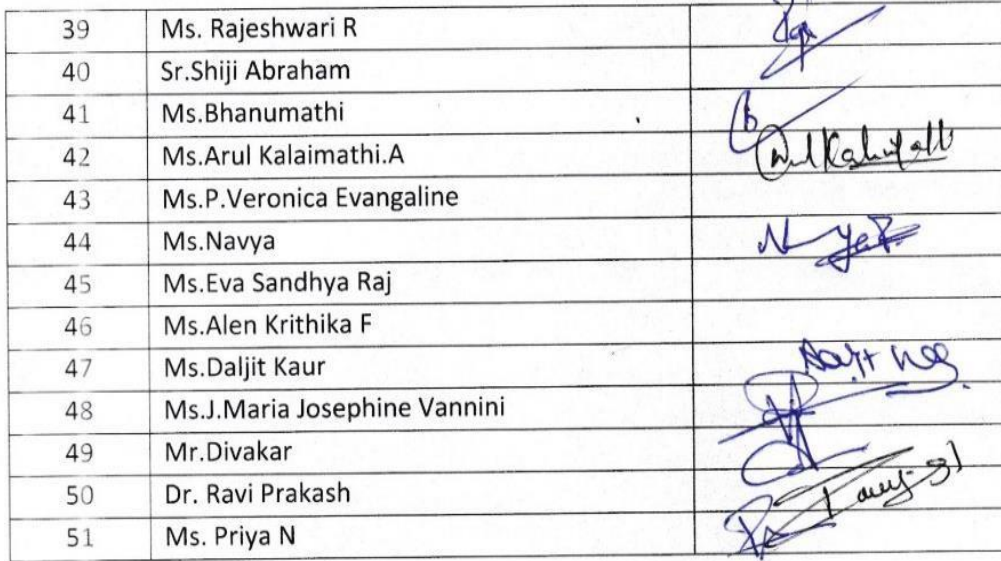 39 Ms. Rajeshwari R
40 Sr.Shiji Abraham
41 Ms.Bhanumathi
42 Ms.Arul Kalaimathi.A
43 Ms.P.Veronica Evangaline
44 Ms.Navya
45 Ms.Eva Sandhya Raj
46 Ms.Alen Krithika F
47 Ms.Daljit Kaur
48 Ms.J.Maria Josephine Vannini
49 Mr.Divakar
50 Dr. Ravi Prakash
51 Ms. Priya N